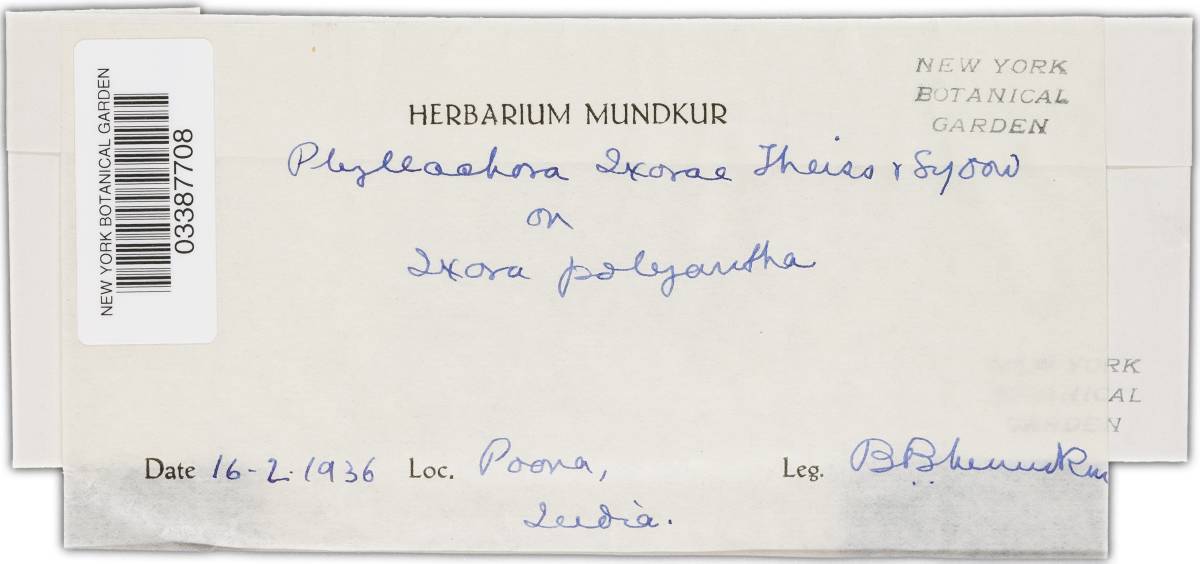 NEW YORK BOTANICAL GARDEN
03387708
NEW YORK
BOTANICAL
GARDEN
HERBARIUM MUNDKUR
Phyllachora Ixorae Theiss & Sydow
on
Ixora polyantha
NEW YORK
BOTANICAL
GARDEN
Date 16-2-1936 Loc. Poona,
India.
Leg.